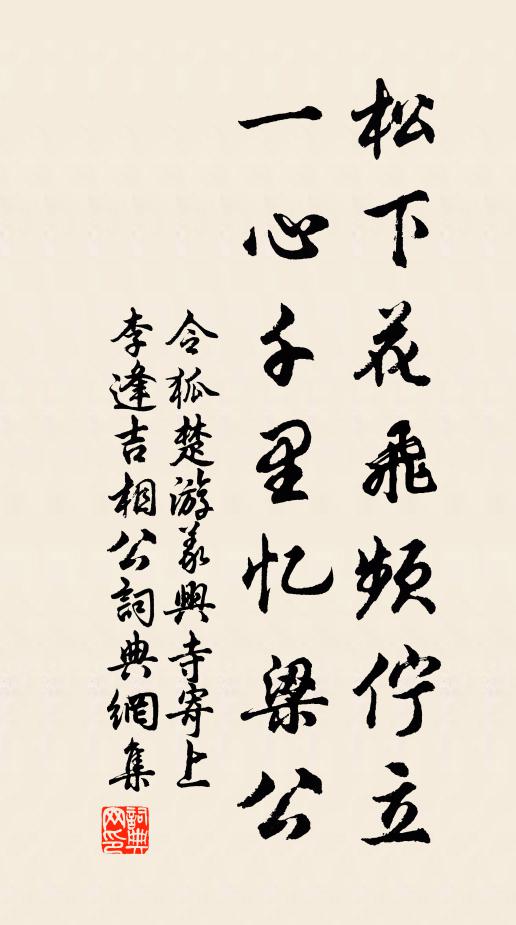 松下花飛頻佇立
一心千里忆梁公
令狐楚游义興寺寄上
李逢吉相公詞典網集
詞典
网印